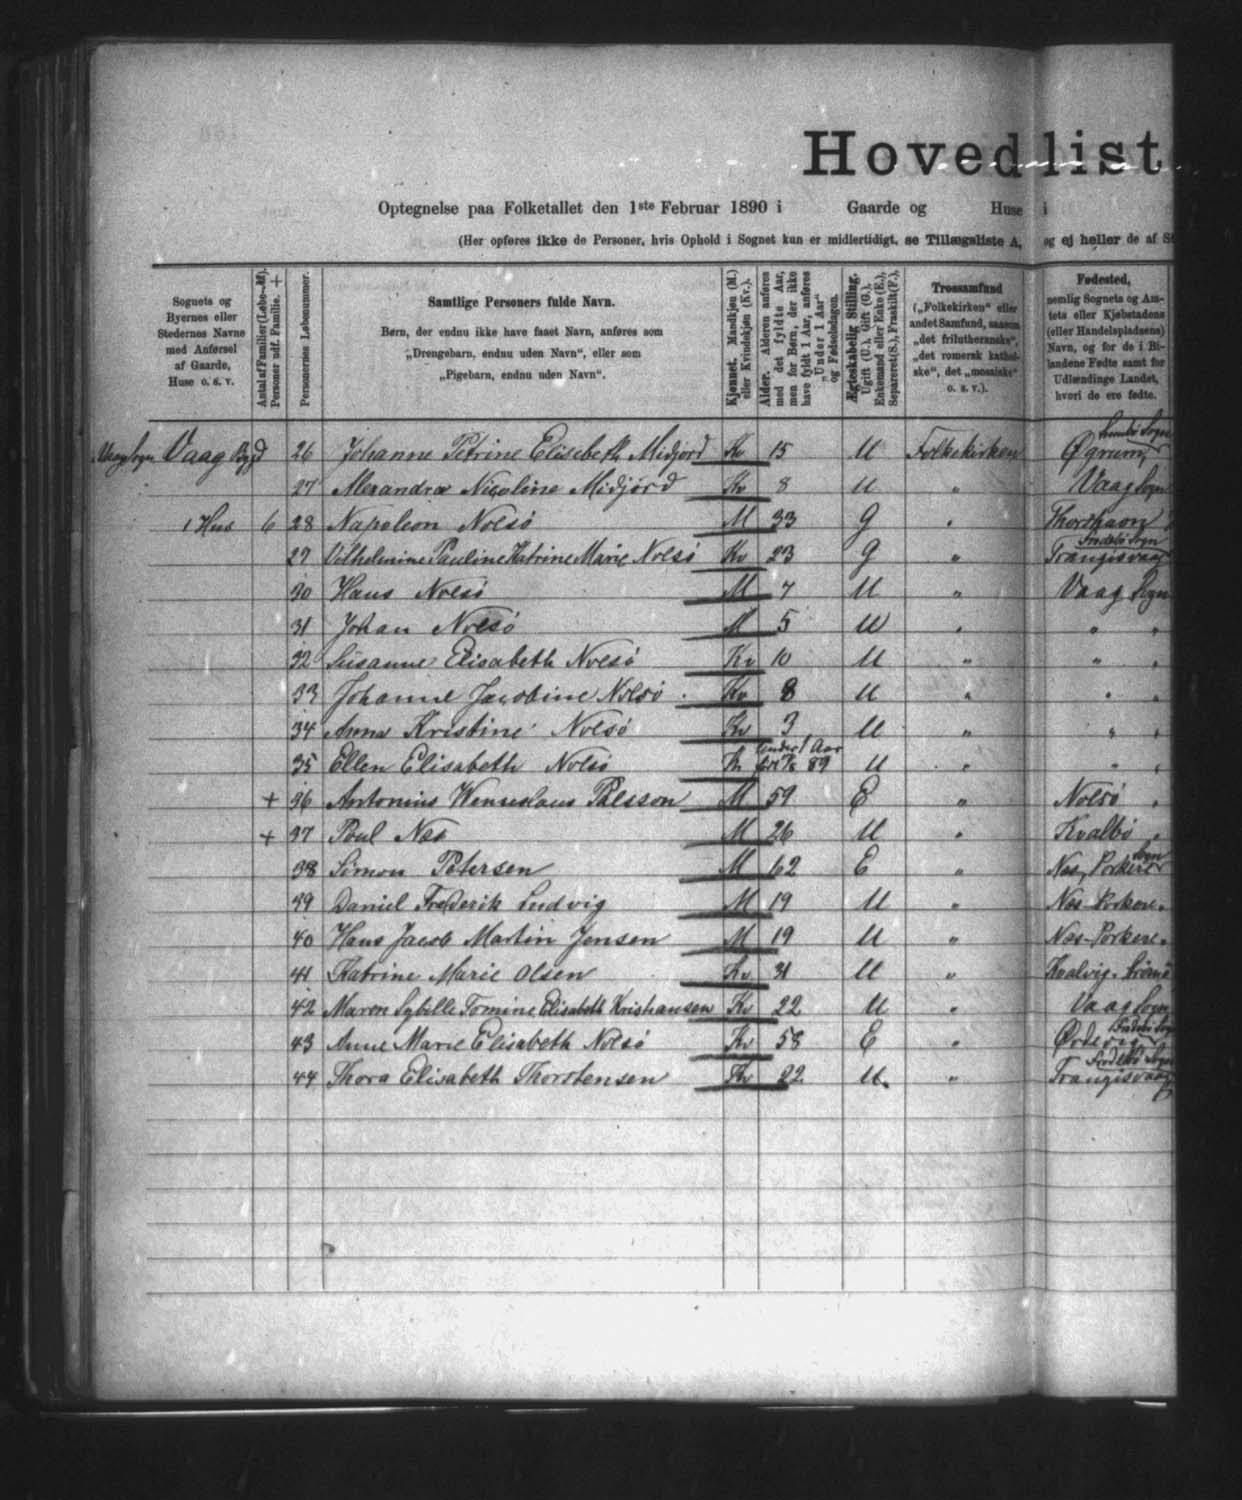 Hovedlist
Optegnelse paa Folketallet den 1ste Februar 1890 i Gaarde og Huse i
(Her opføres ikke de Personer, hvis Ophold i Sognet kun er midlertidigt, se Tillægsliste A, og ej heller de af St
Sognets og
Byernes eller
Stedernes Navne
med Anførsel
af Gaarde,
Huse o. s. v.
Antal af Familier (Løbe-№).
Personer udf. Familie. +
Personernes Løbenummer.
Samtlige Personers fulde Navn.
Børn, der endnu ikke have faaet Navn, anføres som
„Drengebarn, endnu uden Navn“, eller som
„Pigebarn, endnu uden Navn“.
Kjønnet. Mandkjøn (M.)
eller Kvindekjøn (Kv.).
Alder. Alderen anføres
med det fyldte Aar,
men for Børn, der ikke
have fyldt 1 Aar, anføres
„Under 1 Aar“
og Fødselsdagen.
Ægteskabelig Stilling.
Ugift (U.), Gift (G.),
Enkemand eller Enke (E.),
Separeret (S.), Fraskilt (F.).
Trossamfund
(„Folkekirken“ eller
andet Samfund, saasom
„det frilutheranske“,
„det romersk kathol-
ske“, det „mosaiske“
o. s. v.).
Fødested,
nemlig Sognets og Am-
tets eller Kjøbstadens
(eller Handelspladsens)
Navn, og for de i Bi-
landene Fødte samt for
Udlændinge Landet,
hvori de ere fødte.
Vaag Sogn Vaag Bygd 26 Johanne Petrine Elisebeth Midjord Kv 15 U Folkekirken Øgrum, Sumbø Sogn
27 Alexandra Nicoline Midjord Kv 8 U " Vaag Sogn
1 Hus 6 28 Napoleon Nolsø M 33 G " Thorshavn
29 Vilhelmine Pauline Katrine Marie Nolsø Kv 23 G " Trangisvaag Frodebø Sogn
30 Hans Nolsø M 7 U " Vaag Sogn
31 Johan Nolsø M 5 U " " "
32 Susanne Elisabeth Nolsø Kv 10 U " " "
33 Johanne Jacobine Nolsø Kv 8 U " " "
34 Anna Kristine Nolsø Kv 3 U " " "
35 Ellen Elisabeth Nolsø Kv under 1 Aar 89 U " " "
+ 36 Antonius Wenseslaus Palsson M 59 E " Nolsø "
+ 37 Poul Næs M 26 U " Kvalbø "
38 Simon Petersen M 62 E " Næs, Porkere Sogn
39 Daniel Frederik Ludvig M 19 U " Næs Porkere
40 Hans Jacob Martin Jensen M 19 U " Næs-Porkere
41 Katrine Marie Olsen Kv 31 U " Kvalvig Strømø
42 Maren Sybille Tomine Elisabeth Kristiansen Kv 22 U " Vaag Sogn
43 Anne Marie Elisabeth Nolsø Kv 58 E " Ørdevig Frodebø Sogn
44 Thora Elisabeth Thorstensen Kv 22 U. " Trangisvaag Frodebø Sogn